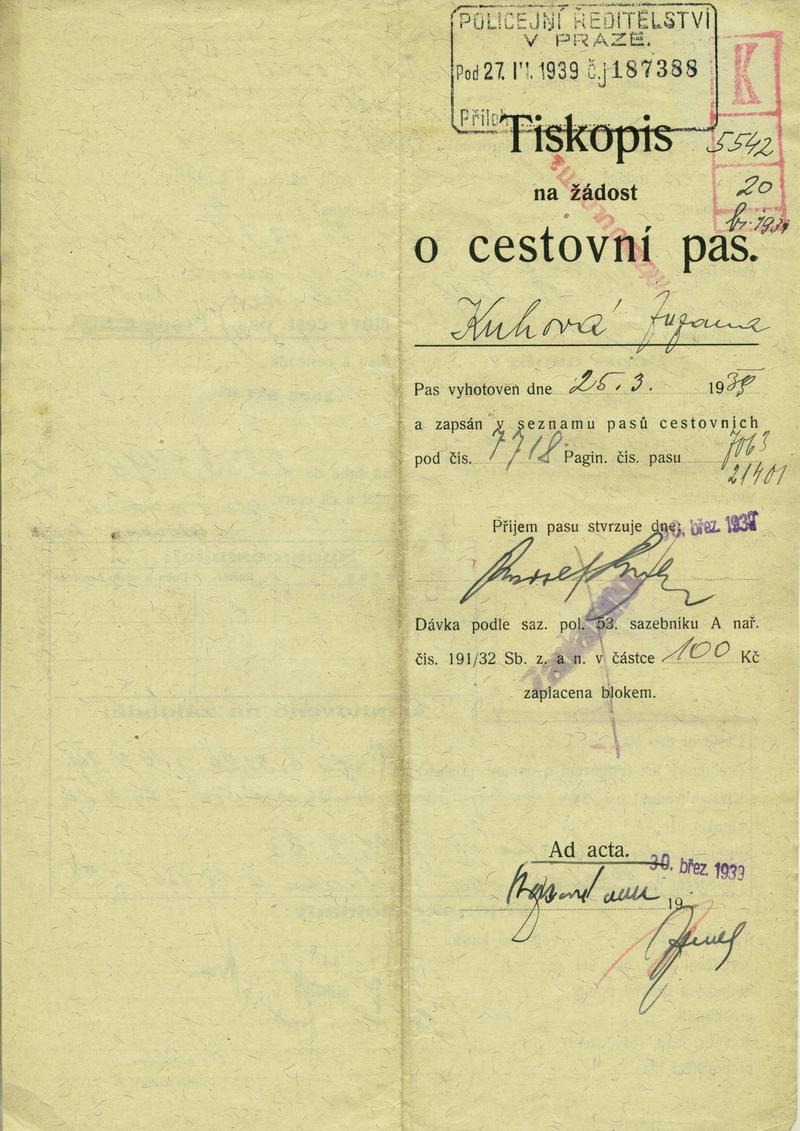 POLICEJNÍ ŘEDITELSTVÍ
V PRAZE.
Pod 27. III. 1939 č.j 187388
Příloh
K
5542
20
Tiskopis
na žádost
o cestovní pas.
Kuhová Zuzana
Pas vyhotoven dne 25. 3. 1939
a zapsán v seznamu pasů cestovních
pod čís. 7718 Pagin. čís. pasu 7063
21401
Příjem pasu stvrzuje dne: břez. 1939
Dávka podle saz. pol. 53. sazebníku A nař.
čís. 191/32 Sb. z. a n. v částce 100 Kč
zaplacena blokem.
Ad acta.
30. břez. 1939
19